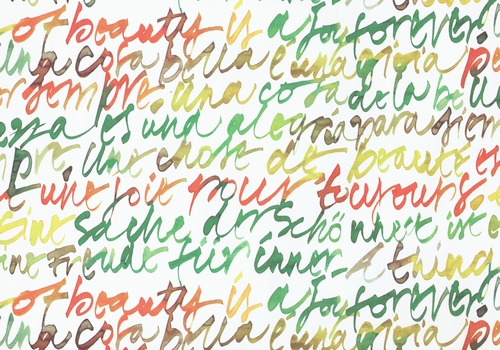 of beauty is a joy forever!
una cosa bella e una gioia pe
r sempre. una cosa de la belle
eza es una alegria para siem
pre une chose de beauté es
t une joie pour toujours.
Eine sache der Schönheit ist e
ine Freude für immer. A thing
of beauty is a joy forever!
una cosa bella e una gioia pe